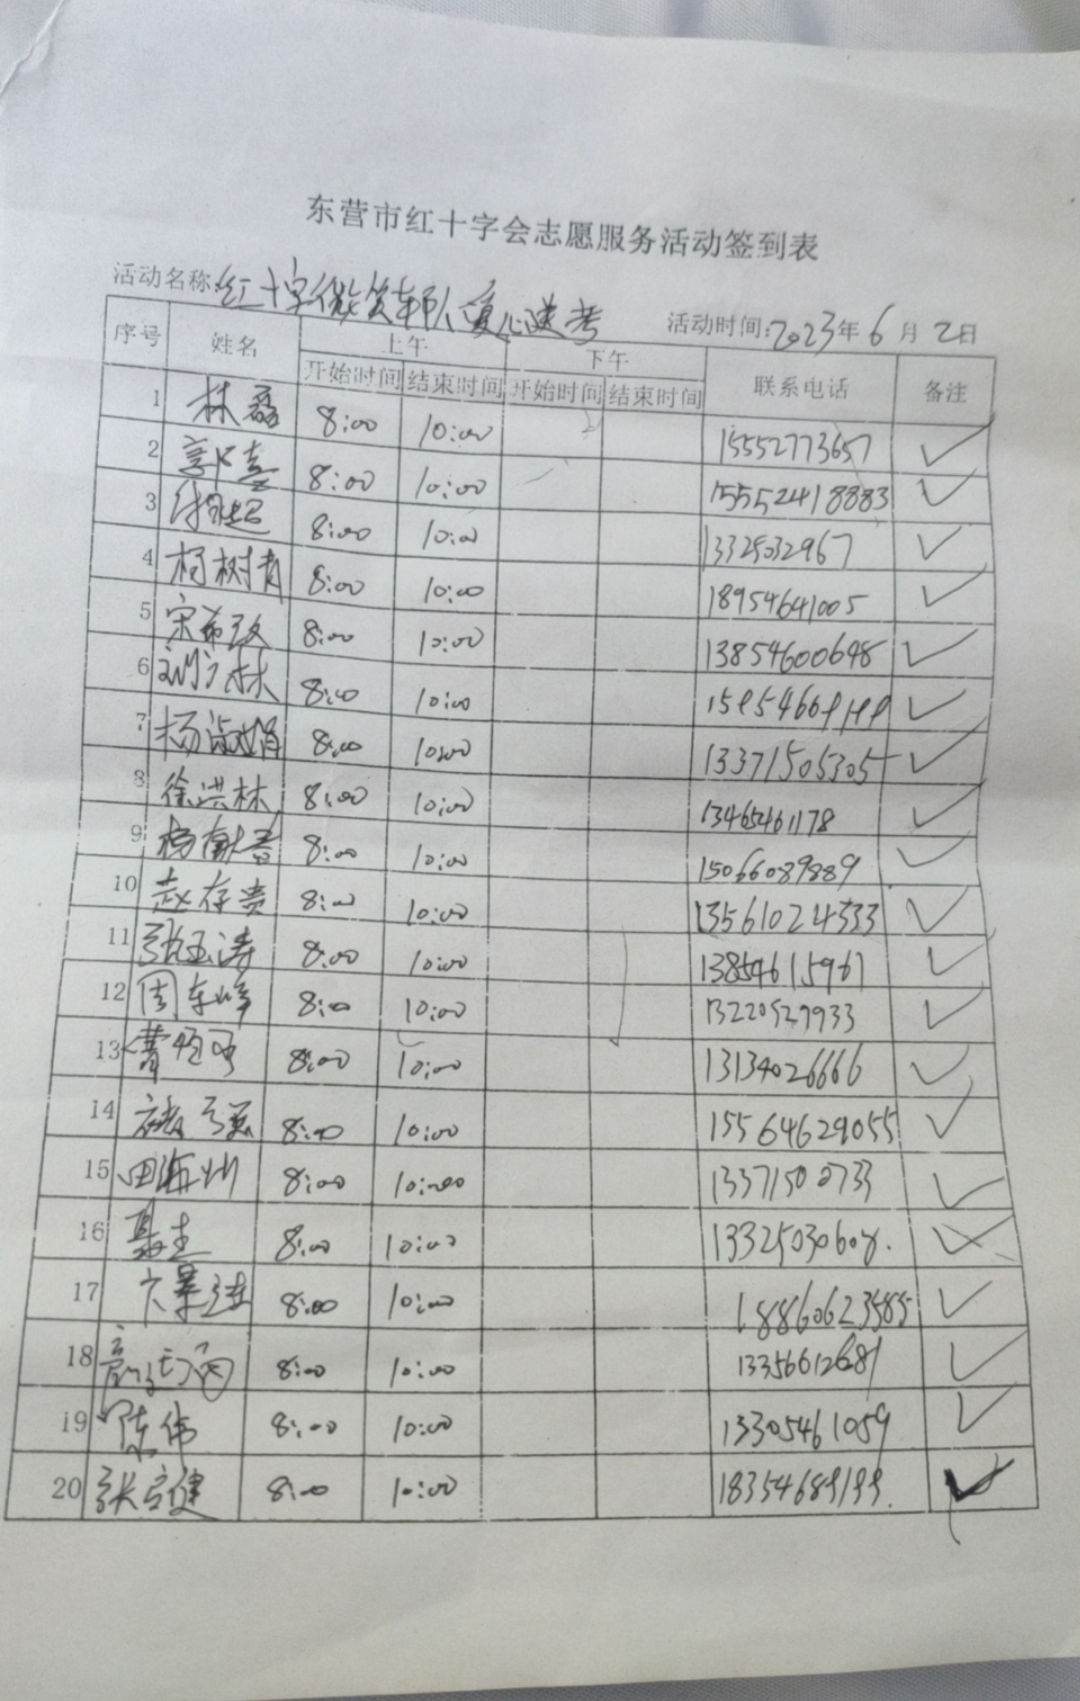 东营市红十字会志愿服务活动签到表
活动名称:红十字微笑车队爱心送考 活动时间:2023年6月2日
序号 姓名 上午 下午 联系电话 备注
开始时间 结束时间 开始时间 结束时间
1 林磊 8:00 10:00 15552773657 ✓
2 郭喜 8:00 10:00 15552418883 ✓
3 8:00 10:00 13325032967 ✓
4 杨树青 8:00 10:00 18954641005 ✓
5 宋希政 8:00 10:00 13854600648 ✓
6 刘广林 8:00 10:00 ✓
7 杨淑娟 8:00 10:00 13371505305 ✓
8 徐洪林 8:00 10:00 13465461178 ✓
9 杨献春 8:00 10:00 15066089889 ✓
10 赵存贵 8:00 10:00 13561024333 ✓
11 张玉涛 8:00 10:00 13854615967 ✓
12 周东峰 8:00 10:00 13220529933 ✓
13 8:00 10:00 13134026666 ✓
14 8:00 10:00 15564629055 ✓
15 田海州 8:00 10:00 13371500733 ✓
16 聂圭 8:00 10:00 13325030608. ✓
17 8:00 10:00 18860623585 ✓
18 8:00 10:00 13356612681 ✓
19 陈伟 8:00 10:00 13305461059 ✓
20 张宝健 8:00 10:00 ✓